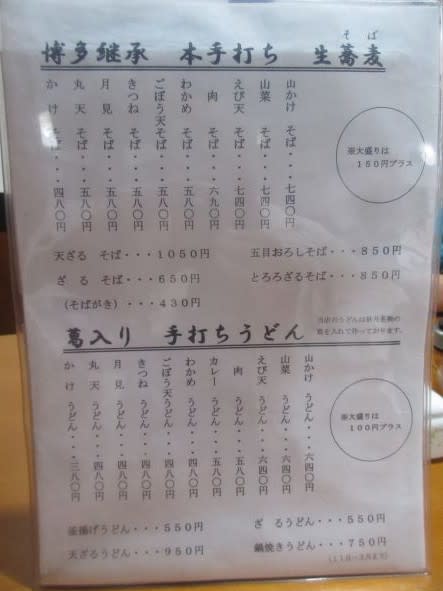 そば
博多継承 本手打ち 生蕎麦
山かけ そば・・・七四〇円
山菜 そば・・・七四〇円
えび天 そば・・・七四〇円
肉 そば・・・六九〇円
わかめ そば・・・五八〇円
ごぼう天 そば・・・五八〇円
きつね そば・・・五八〇円
月見 そば・・・五八〇円
丸天 そば・・・五八〇円
かけ そば・・・四八〇円
※大盛りは
150円プラス
天ざる そば・・・1050円
五目おろしそば・・・850円
ざる そば・・・650円
とろろざるそば・・・850円
(そばがき)・・・430円
当店のうどんは秋月名物の
葛を入れて作っております。
葛入り 手打ちうどん
山かけ うどん・・・六四〇円
山菜 うどん・・・六四〇円
えび天 うどん・・・六四〇円
肉 うどん・・・五八〇円
カレー うどん・・・五八〇円
わかめ うどん・・・四八〇円
ごぼう天うどん・・・四八〇円
きつね うどん・・・四八〇円
月見 うどん・・・四八〇円
丸天 うどん・・・四八〇円
かけ うどん・・・三八〇円
※大盛りは
100円プラス
釜揚げうどん・・・550円
ざるうどん・・・550円
天ざるうどん・・・950円
鍋焼きうどん・・・750円
(11月~3月まで)